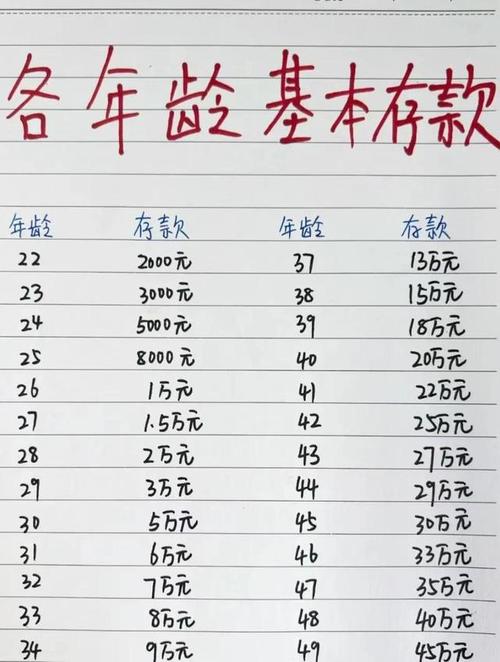 各年龄基本存款
年龄 存款 年龄 存款
22 2000元 37 13万元
23 3000元 38 15万元
24 5000元 39 18万元
25 8000元 40 20万元
26 1万元 41 22万元
27 1.5万元 42 25万元
28 2万元 43 27万元
29 3万元 44 29万元
30 5万元 45 30万元
31 6万元 46 33万元
32 7万元 47 35万元
33 8万元 48 40万元
34 9万元 49 45万元